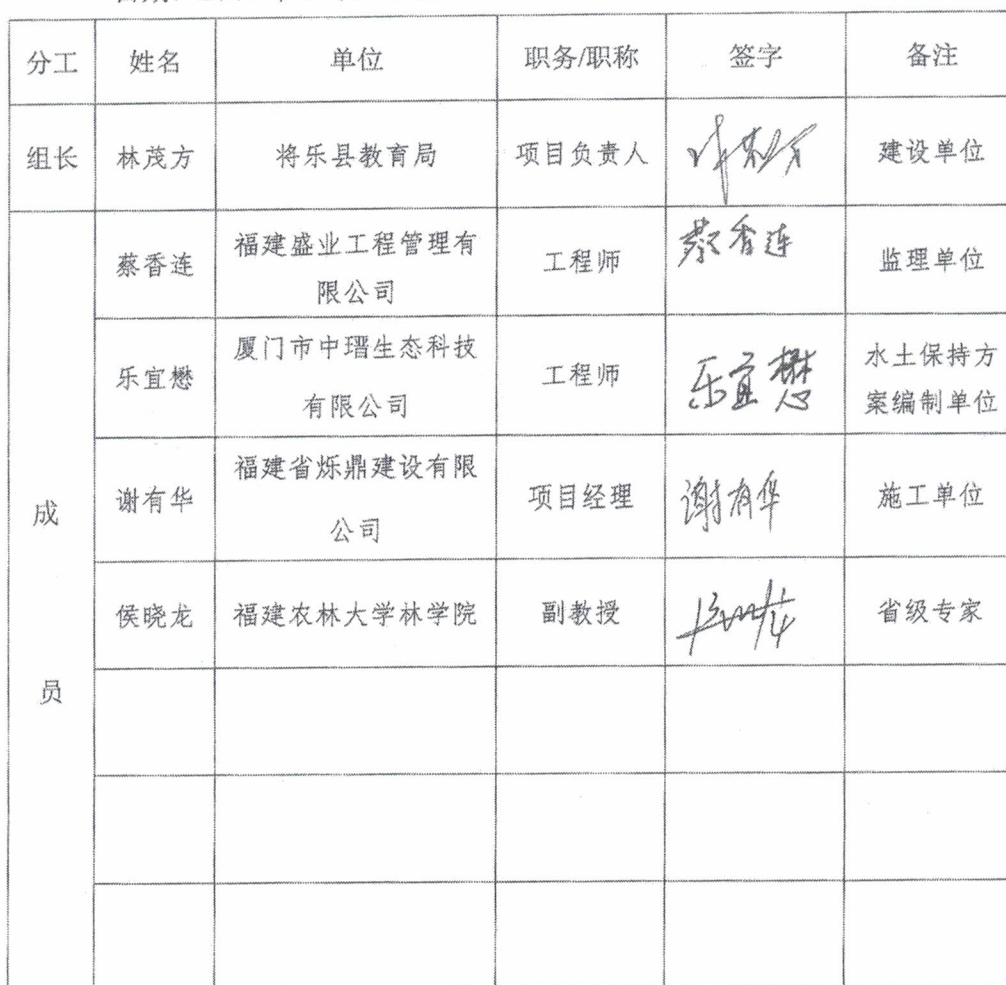 分工 姓名 单位 职务/职称 签字 备注
组长 林茂方 将乐县教育局 项目负责人 建设单位
蔡香连 福建盛业工程管理有 工程师 蔡香连 监理单位
限公司
乐宜懋 厦门市中瑨生态科技 工程师 乐宜懋 水土保持方
有限公司 案编制单位
成 谢有华 福建省烁鼎建设有限 项目经理 谢有华 施工单位
公司
侯晓龙 福建农林大学林学院 副教授 省级专家
员